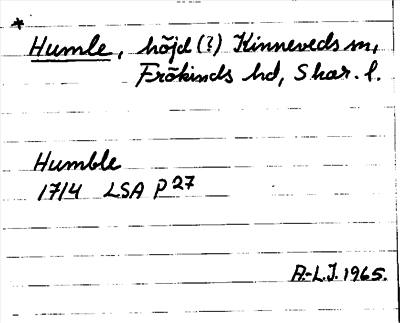 *
Humle, höjd (?) Kinneveds sn,
Frökinds hd, Skar. l.
Humble
1714 LSA P 27
A.-L.J. 1965.